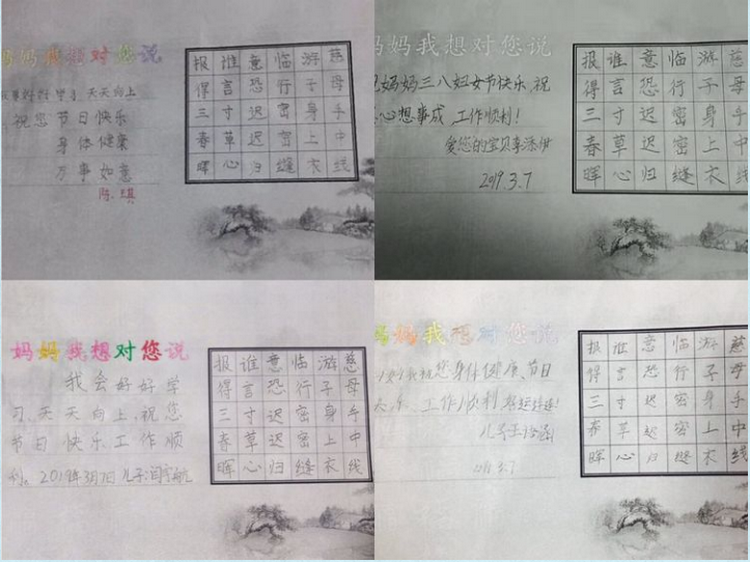 妈妈我想对您说
好好学习 天天向上
祝您节日快乐
身体健康
万事如意
陈琪
报谁意临游慈
得言恐行子母
三寸迟密身手
春草迟密上中
晖心归缝衣线
妈妈我想对您说
妈妈三八妇女节快乐,祝
心想事成 工作顺利!
爱您的宝贝李添
2019.3.7
报谁意临游慈
得言恐行子母
三寸迟密身手
春草迟密上中
晖心归缝衣线
妈妈我想对您说
我会好好学
习,天天向上,祝您
节日快乐工作顺
利。2019年3月7日 儿子:闫宇航
报谁意临游慈
得言恐行子母
三寸迟密身手
春草迟密上中
晖心归缝衣线
妈妈我想对您说
我祝您身体健康、节日
乐、工作顺利 好运连连!
儿子王
3.7
报谁意临游慈
得言恐行子母
三寸迟密身手
春草迟密上中
晖心归缝衣线